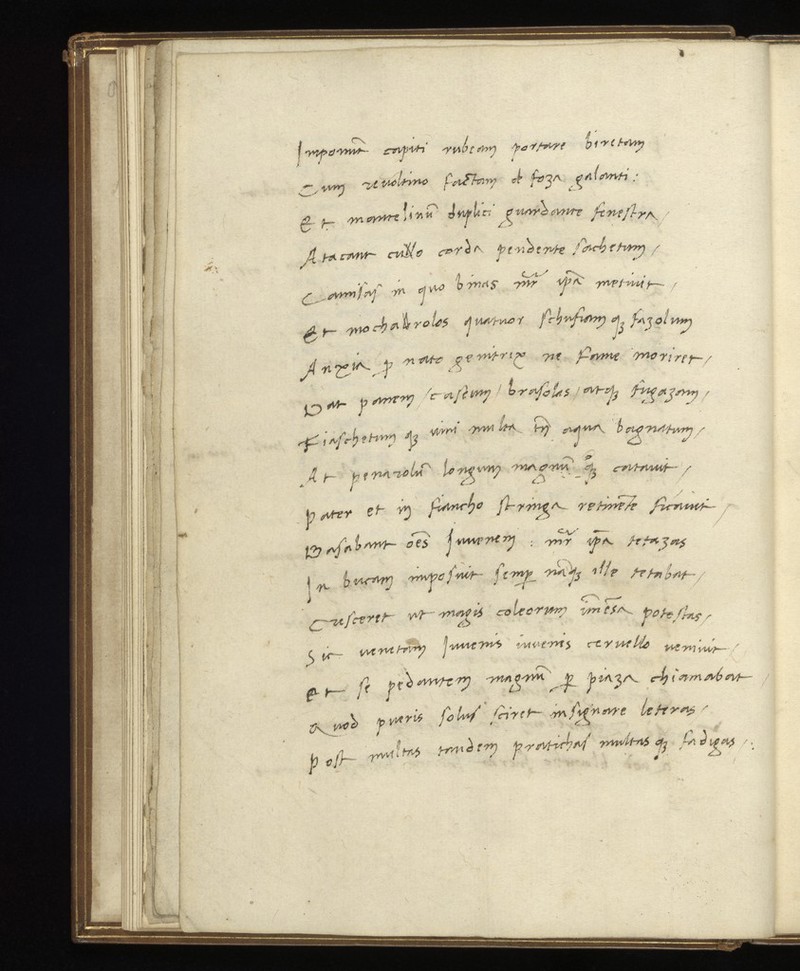 Imponit capiti rubeam portare biretam
Cum revoltino factam de foza galanti:
Et mantelinũ duplici guardante fenestra/
Atacant cullo corda pendente sachetum/
Camisas in quo binas mr̃ ipã metivit/
Et mochalirolos quatuor schufiamqȝ fazolum
Anxia ꝑ nato genitrix ne fame moriret/
Dat panem/caseum/brasolas/atqȝ fugazam/
Fiaschetumqȝ vini multa tñ aqua bagnatum/
At penarolũ longum magnũqȝ catavit/
Pater et in fiancho stringa retinẽte ficavit/
Basabant oẽs Iuvenem: mr̃ ipã tetazas
In bucam imposuit semꝑ nãqȝ ille tetabat/
Cresceret ut magis coleorum ĩmẽsa potestas/
Sic venetam Iuvenis iuvenis cervello venivit/
Et se pedantem magnũ ꝑ piaza chiamabat/
Quod pueris solus sciret insignare leteras/
Post multas tandem pratichas multasqȝ fadigas/: